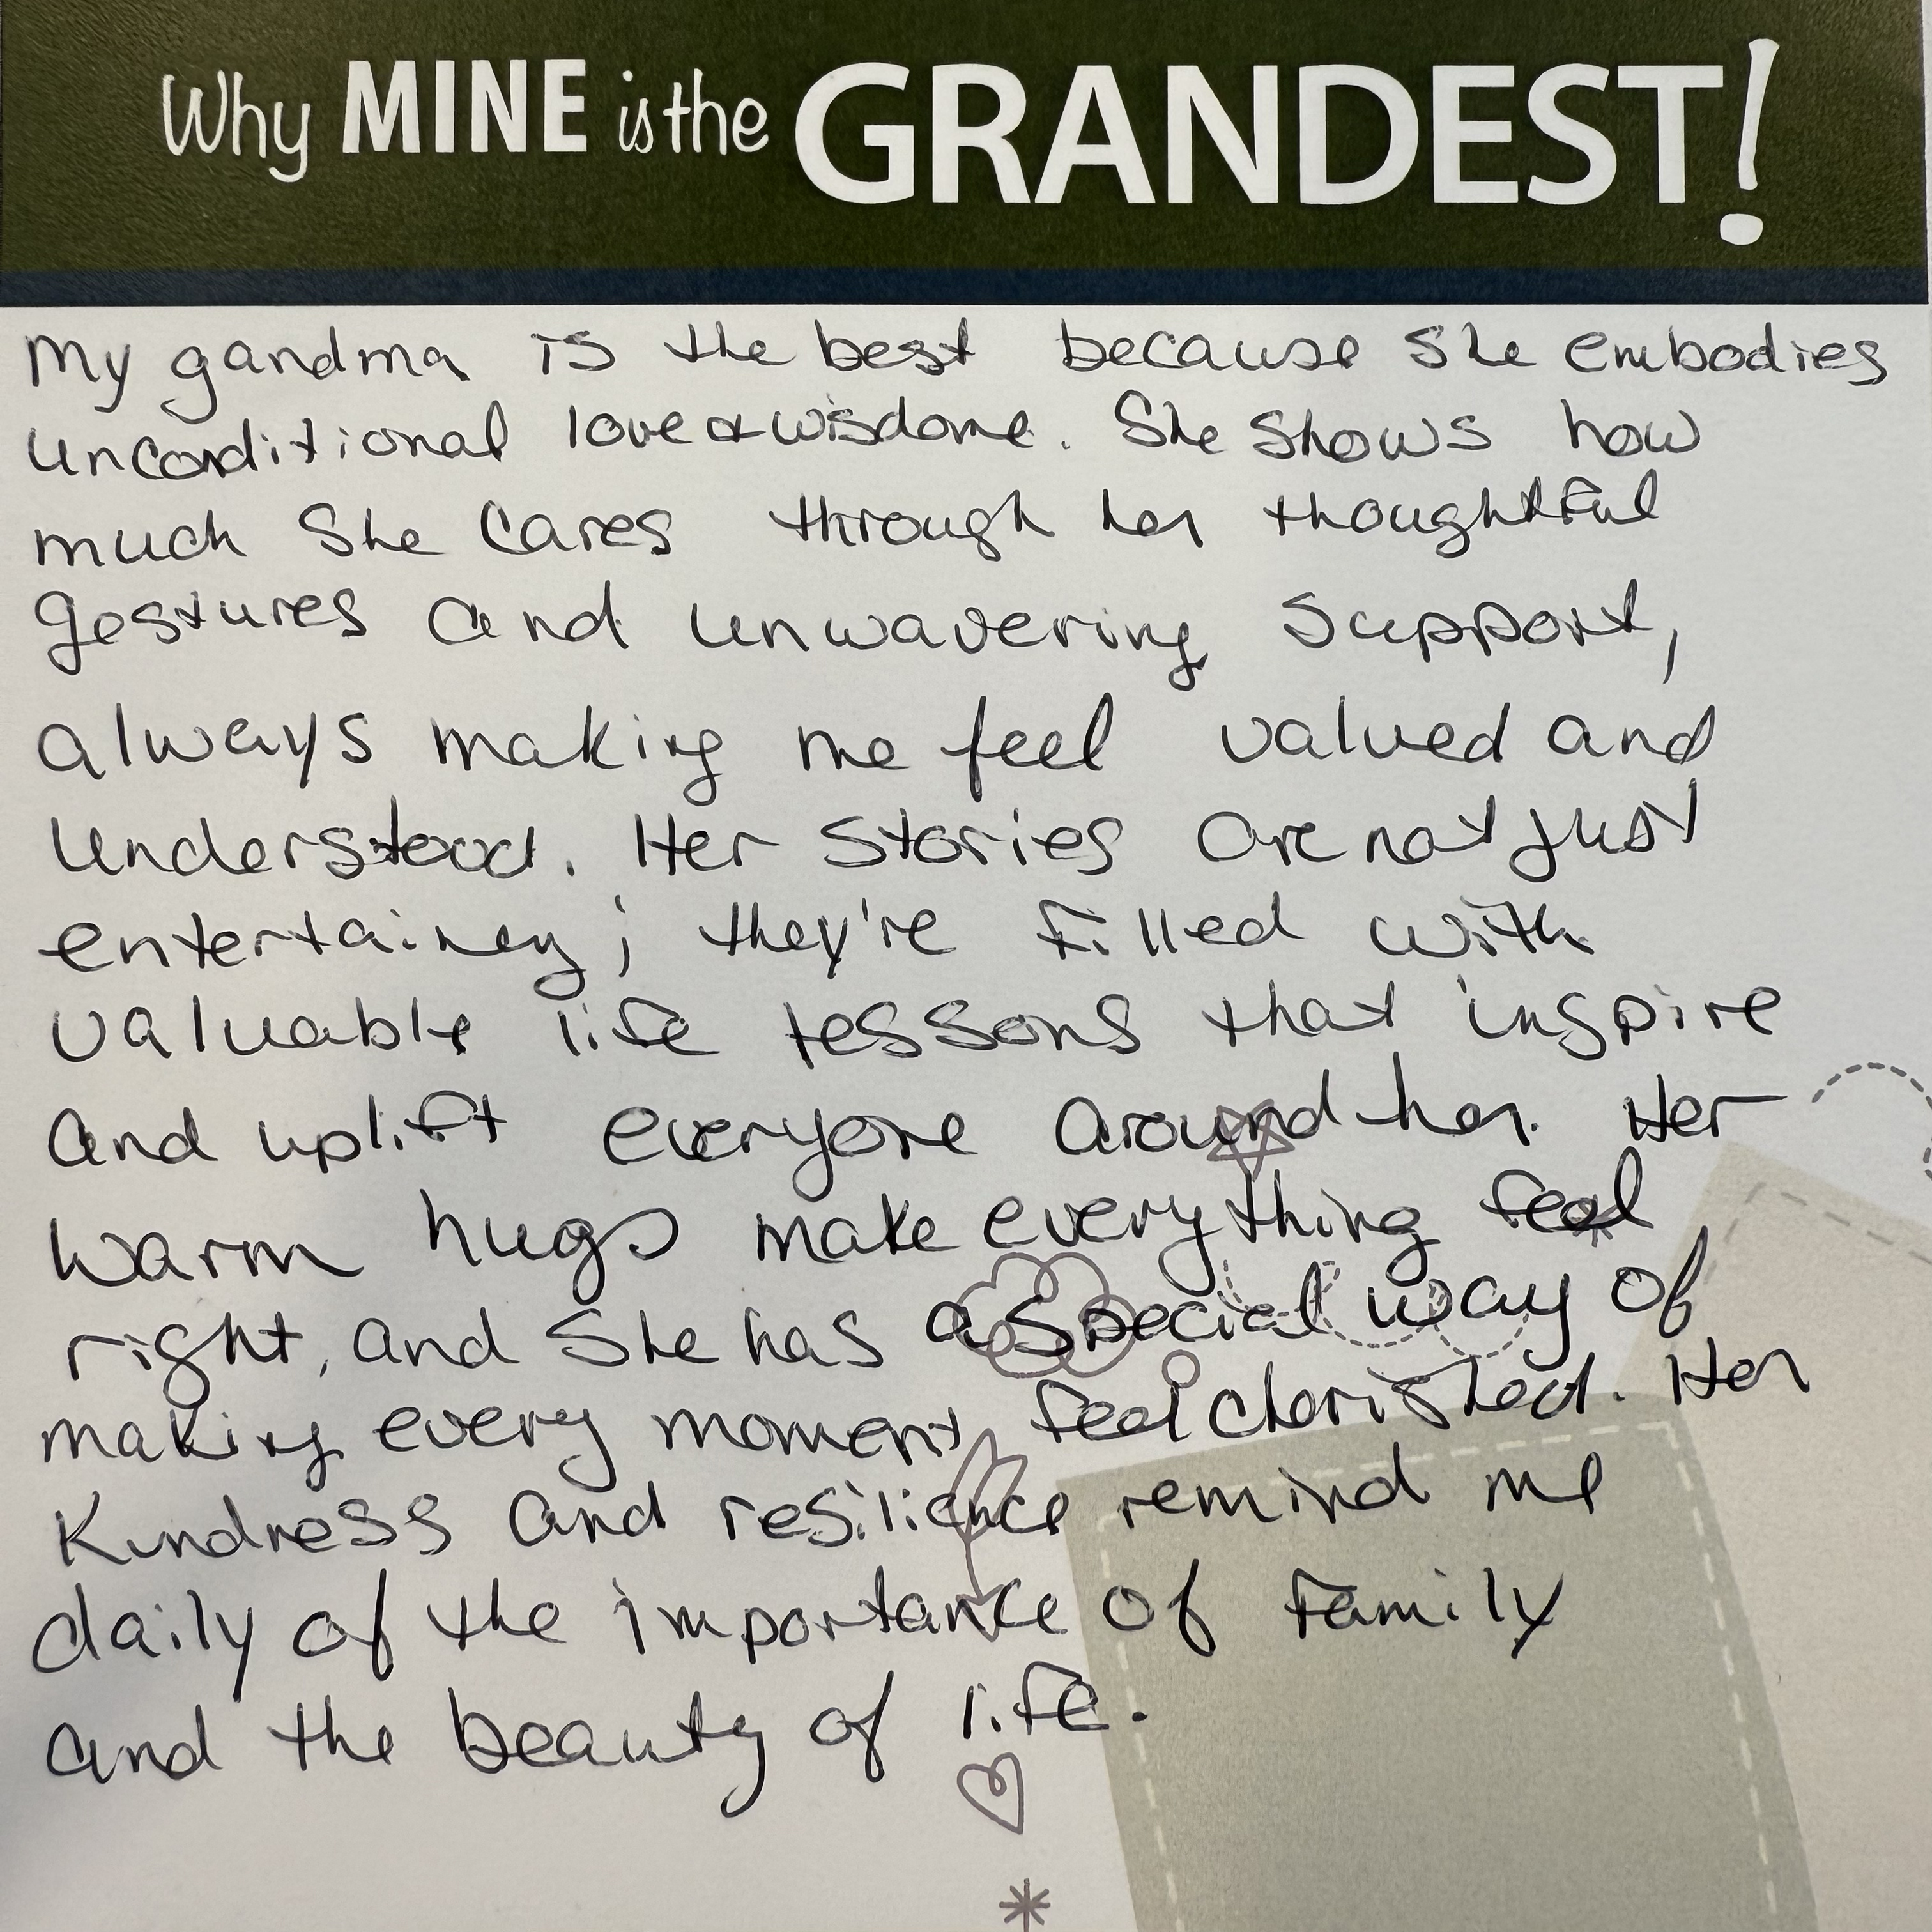 Why MINE is the GRANDEST!
My gandma is the best because she embodies
unconditional love & wisdome. She shows how
much she cares through her thoughtful
gestures and unwavering support,
always making me feel valued and
understood. Her stories are not just
entertainey; they're filled with
valuable life lessons that inspire
and uplift everyone around her. Her
warm hugs make everything feel
right, and she has a special way of
making every moment feel cherished. Her
Kindness and resilience remind me
daily of the importance of family
and the beauty of life.